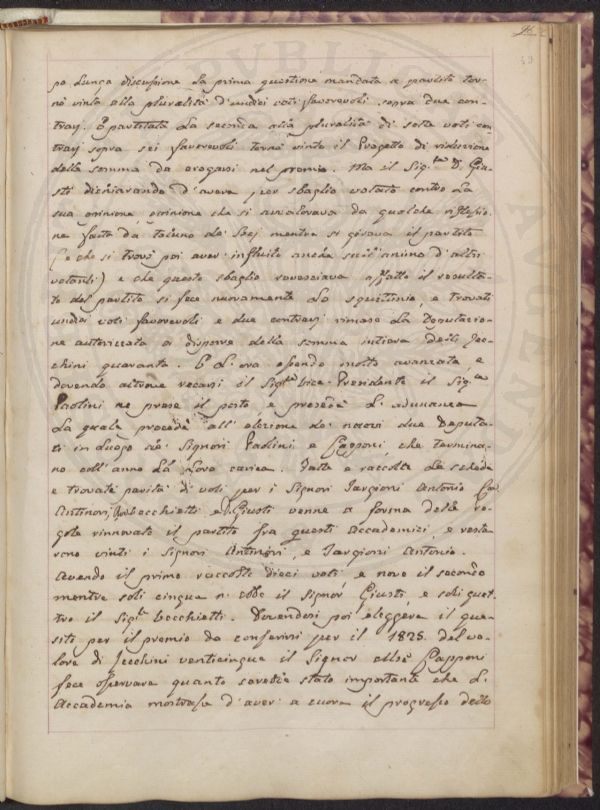 po lunga discussione la prima questione mandata a partito tor-
nò vinta alla pluralità d'undici voti favorevoli sopra due con-
trarj. Epartitata la seconda alla pluralità di sette voti con
trarj sopra sei favorevoli tornò vinto il Progetto di riduzione
della somma da erogarsi nel premio. Ma il Sig.re D. Giu-
sti dichiarando d'avere per sbaglio votato contro la
sua opinione, opinione che si avvalorava da qualche riflessio-
ne fatta da taluno de' Socj mentre si girava il partito
(e che si trovò poi aver influito anche sull'animo d'altri
votanti) e che questo sbaglio rovesciava affatto il resulta-
to del partito si fece nuovamente lo squittinio, e trovati
undici voti favorevoli e due contrarj rimase la Deputazio-
ne autorizzata a disporre della somma intiera degli Zec-
chini quaranta. E l'ora essendo molto avanzata, e
dovendo altrove recarsi il Sig.re Vice-Presidente il Sig.re
Paolini ne prese il posto, e presedè l'adunanza
la quale procedè all'elezione de' nuovi due Deputa-
ti in luogo de' Signori Paolini e Capponi, che termina-
no coll'anno la loro carica. Fatte e raccolte le schede
e trovate parità di voti per i Signori Targioni Antonio
Antinori, Becchietti e Giusti venne a forma delle re-
gole rinnovato il partito fra questi Accademici, e resta-
rono vinti i Signori Antinori, e Targioni Antonio.
Avendo il primo raccolti dieci voti, e nove il secondo
mentre soli cinque n'ebbe il Signor Giusti, e soli quat-
tro il Sig.re Becchietti. Dovendosi poi eleggere il que-
sito per il premio da conferirsi per il 1825. del va-
lore di Zecchini venticinque il Signor Capponi
fece osservare quanto sarebbe stato importante che l'
Accademia mostrasse d'aver a cuore il progresso dello